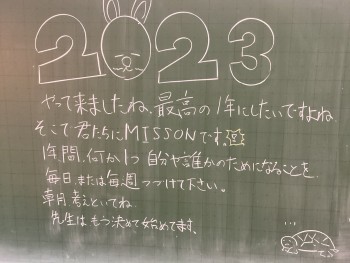 2023
やって来ましたね、最高の1年にしたいですよね
そこで君たちにMISSONです。
1年間、何か1つ自分や誰かのためになることを、
毎日、または毎週つづけて下さい。
考えといてね。
先生はもう決めて始めてます。